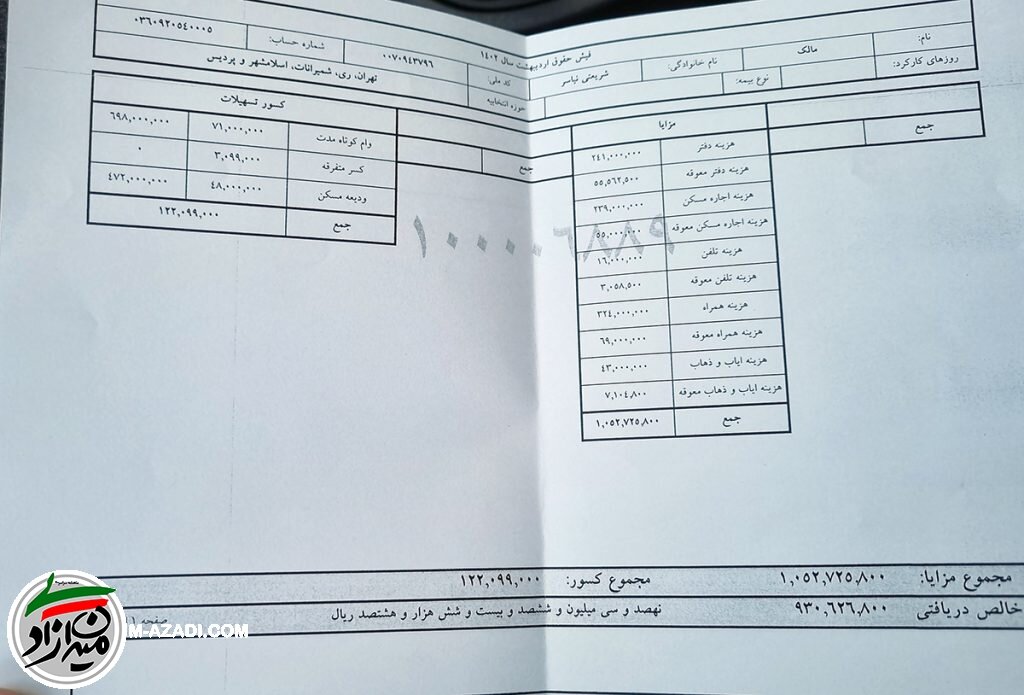 فیش حقوق اردیبهشت سال ۱۴۰۲
نام: مالک نام خانوادگی: شریعتی نیاسر کد ملی: ۰۰۷۰۹۴۳۷۹۶ شماره حساب: ۰۳۶۰۹۲۰۵۴۰۰۰۵
روزهای کارکرد: نوع بیمه: حوزه انتخابیه تهران، ری، شمیرانات، اسلامشهر و پردیس
مزایا
جمع
هزینه دفتر ۲۴۱,۰۰۰,۰۰۰
هزینه دفتر معوقه ۵۵,۵۶۲,۵۰۰
هزینه اجاره مسکن ۲۳۹,۰۰۰,۰۰۰
هزینه اجاره مسکن معوقه ۵۵,۰۰۰,۰۰۰
هزینه تلفن ۱۶,۰۰۰,۰۰۰
هزینه تلفن معوقه ۳,۰۵۸,۵۰۰
هزینه همراه ۳۲۴,۰۰۰,۰۰۰
هزینه همراه معوقه ۶۹,۰۰۰,۰۰۰
هزینه ایاب و ذهاب ۴۳,۰۰۰,۰۰۰
هزینه ایاب و ذهاب معوقه ۷,۱۰۴,۸۰۰
جمع ۱,۰۵۲,۷۲۵,۸۰۰
جمع
کسور تسهیلات
وام کوتاه مدت ۷۱,۰۰۰,۰۰۰ ۶۹۸,۰۰۰,۰۰۰
کسر متفرقه ۳,۰۹۹,۰۰۰ ۰
ودیعه مسکن ۴۸,۰۰۰,۰۰۰ ۴۷۲,۰۰۰,۰۰۰
جمع ۱۲۲,۰۹۹,۰۰۰
مجموع مزایا: ۱,۰۵۲,۷۲۵,۸۰۰ مجموع کسور: ۱۲۲,۰۹۹,۰۰۰
خالص دریافتی ۹۳۰,۶۲۶,۸۰۰ نهصد و سی میلیون و ششصد و بیست و شش هزار و هشتصد ریال صفحه ۱
میهن آزاد
M-AZADI.COM